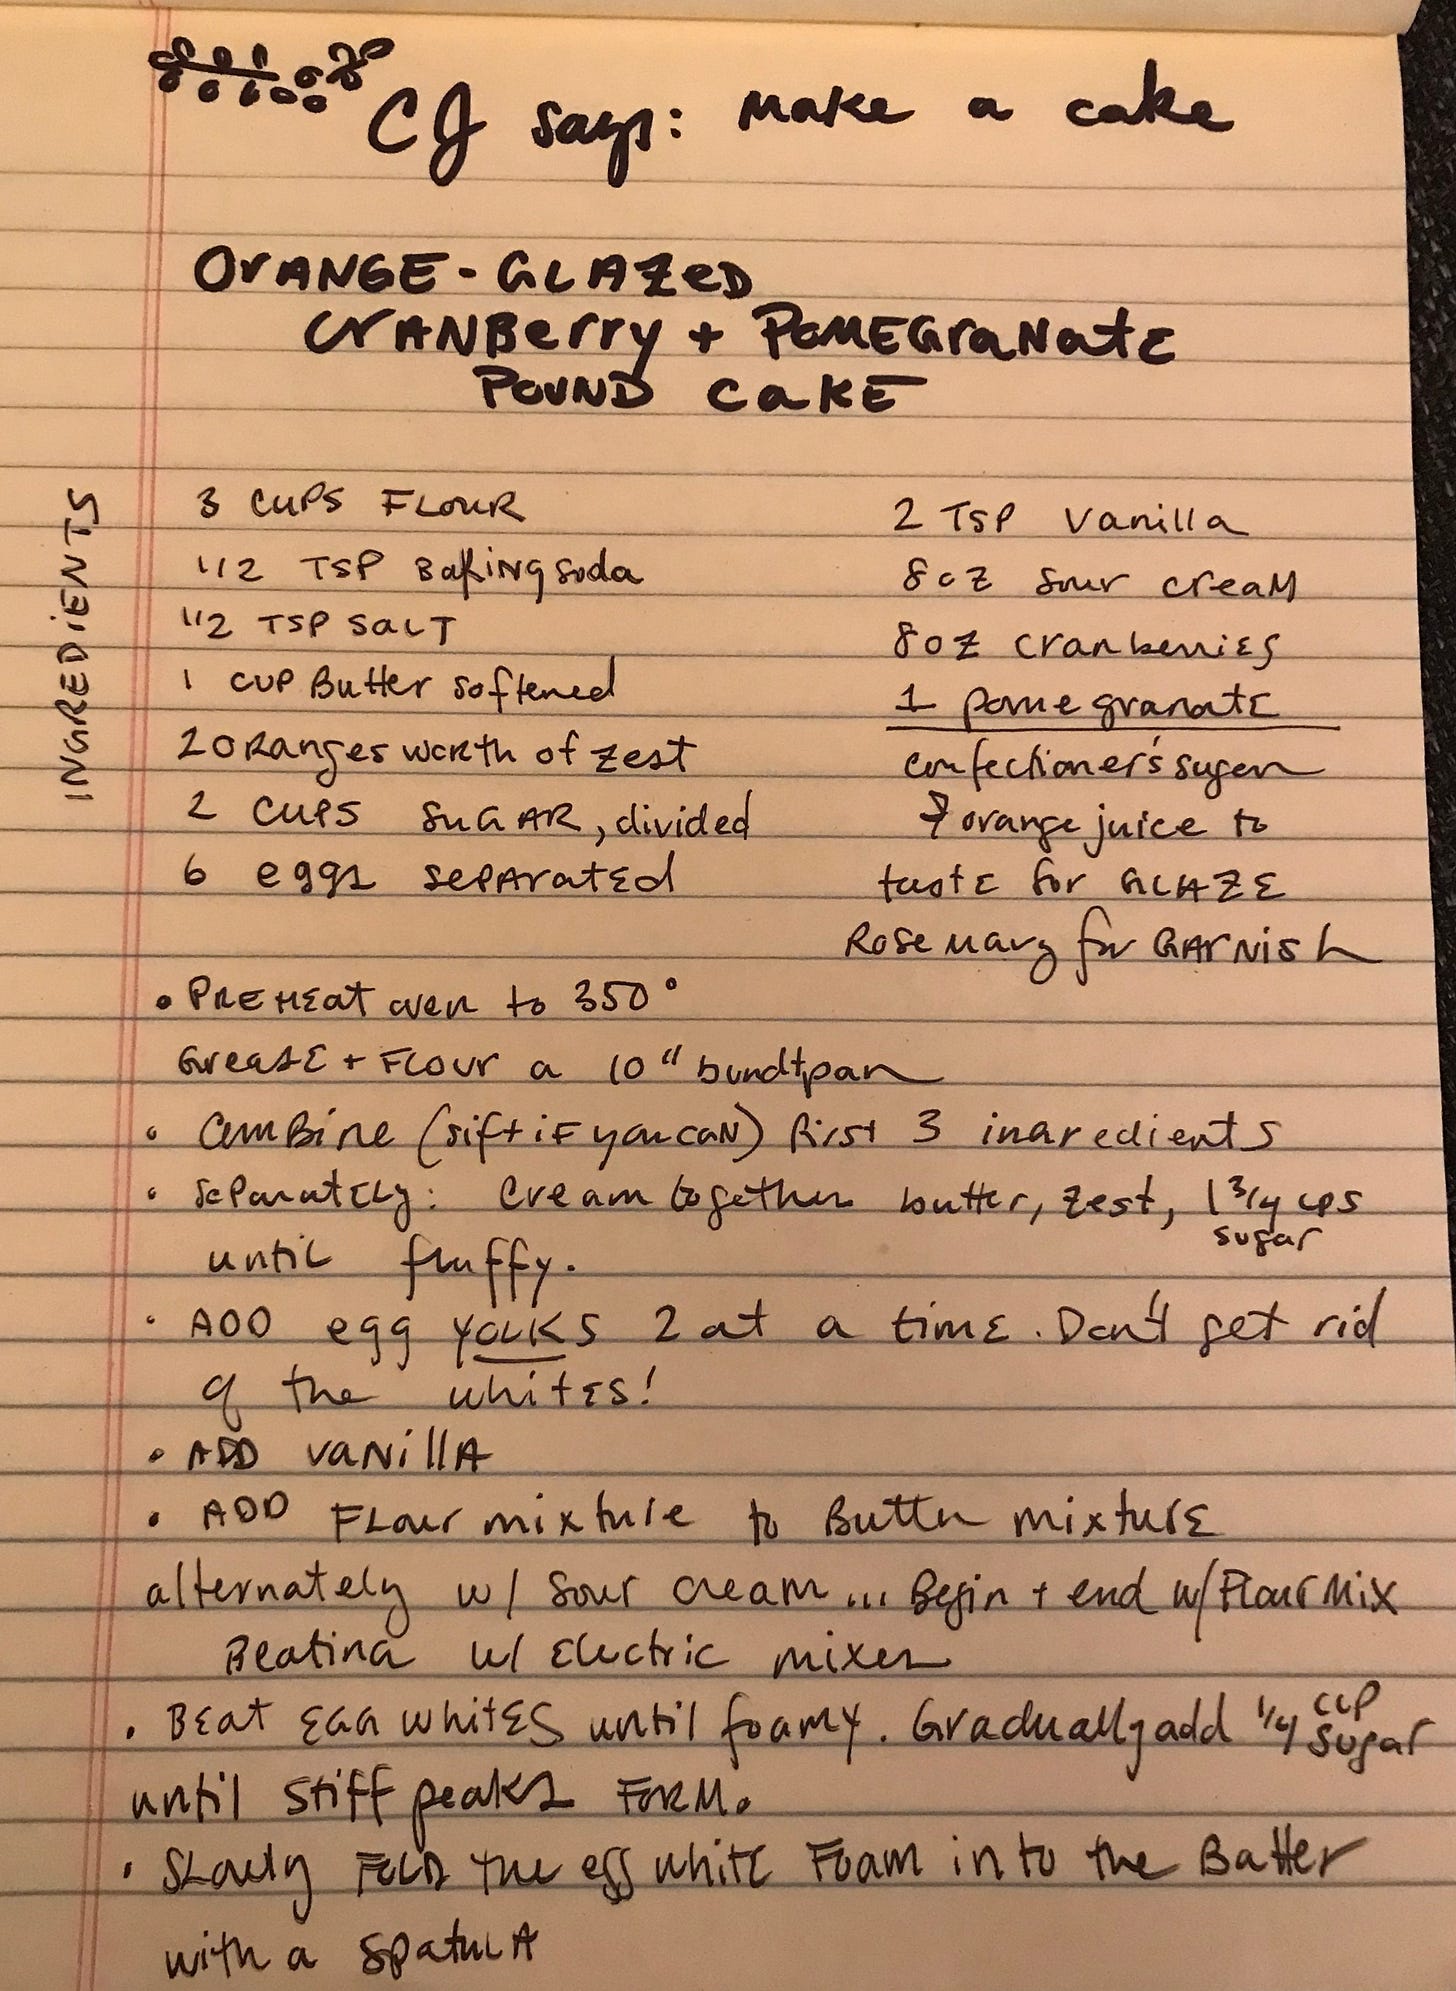 CJ says: Make a cake
ORANGE-GLAZED
CRANBerry + POMEGraNatE
POUND CaKE
INGREDiENTS
3 CUPS FLOUR
1/2 TSP BaKiNg Soda
1/2 TSP SaLT
1 CUP Butter softened
2 ORanges worth of zest
2 CUPS SuGAR, divided
6 eggs sePAratEd
2 TSP Vanilla
8oz Sour creaM
8oz cranberriES
1 pomegranatE
confectioner's sugar
+ orange juice to
tastE for GLAZE
Rosemary for GArNish
• PREHEat oven to 350°
GreasE + FLOUr a 10" bundtpan
• ComBine (sift iF you caN) first 3 ingredients
• SePａratELy: Cream together butter, zest, 1 3/4 cps
sugar
until fluffy.
• ADD egg yolks 2 at a timE. Don't get rid
of the whitES!
• ADD vaNillA
• ADD FLour mixture to Butter mixturE
alternately w/ Sour cream... Begin + end w/ FlourMix
Beating w/ Electric mixer
• BEat EGG whitES until foamy. Gradually add 1/4 cup
sugar
until stiff peaks FORM.
• SLowly FOLD the egg whitE Foam into the Batter
with a SpatuLA